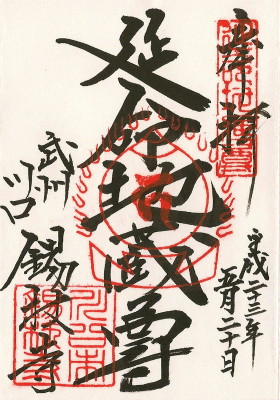 奉拝
平成二十三年
五月二十日
延命地蔵尊
武州
川口
錫杖寺